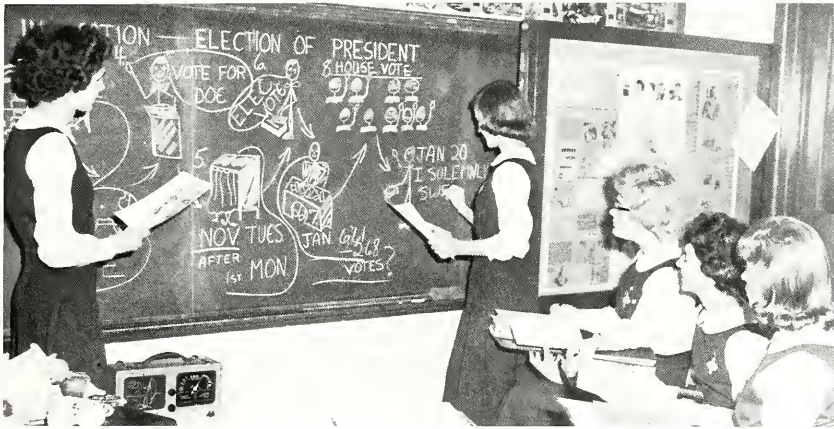 — ELECTION OF PRESIDENT
4.
VOTE FOR
DOE
6.
ELEC
8. HOUSE VOTE
5.
NOV TUES
AFTER
1ST MON
JAN 6
268
VOTES?
9
JAN 20
I SOLEMNLY
SWE